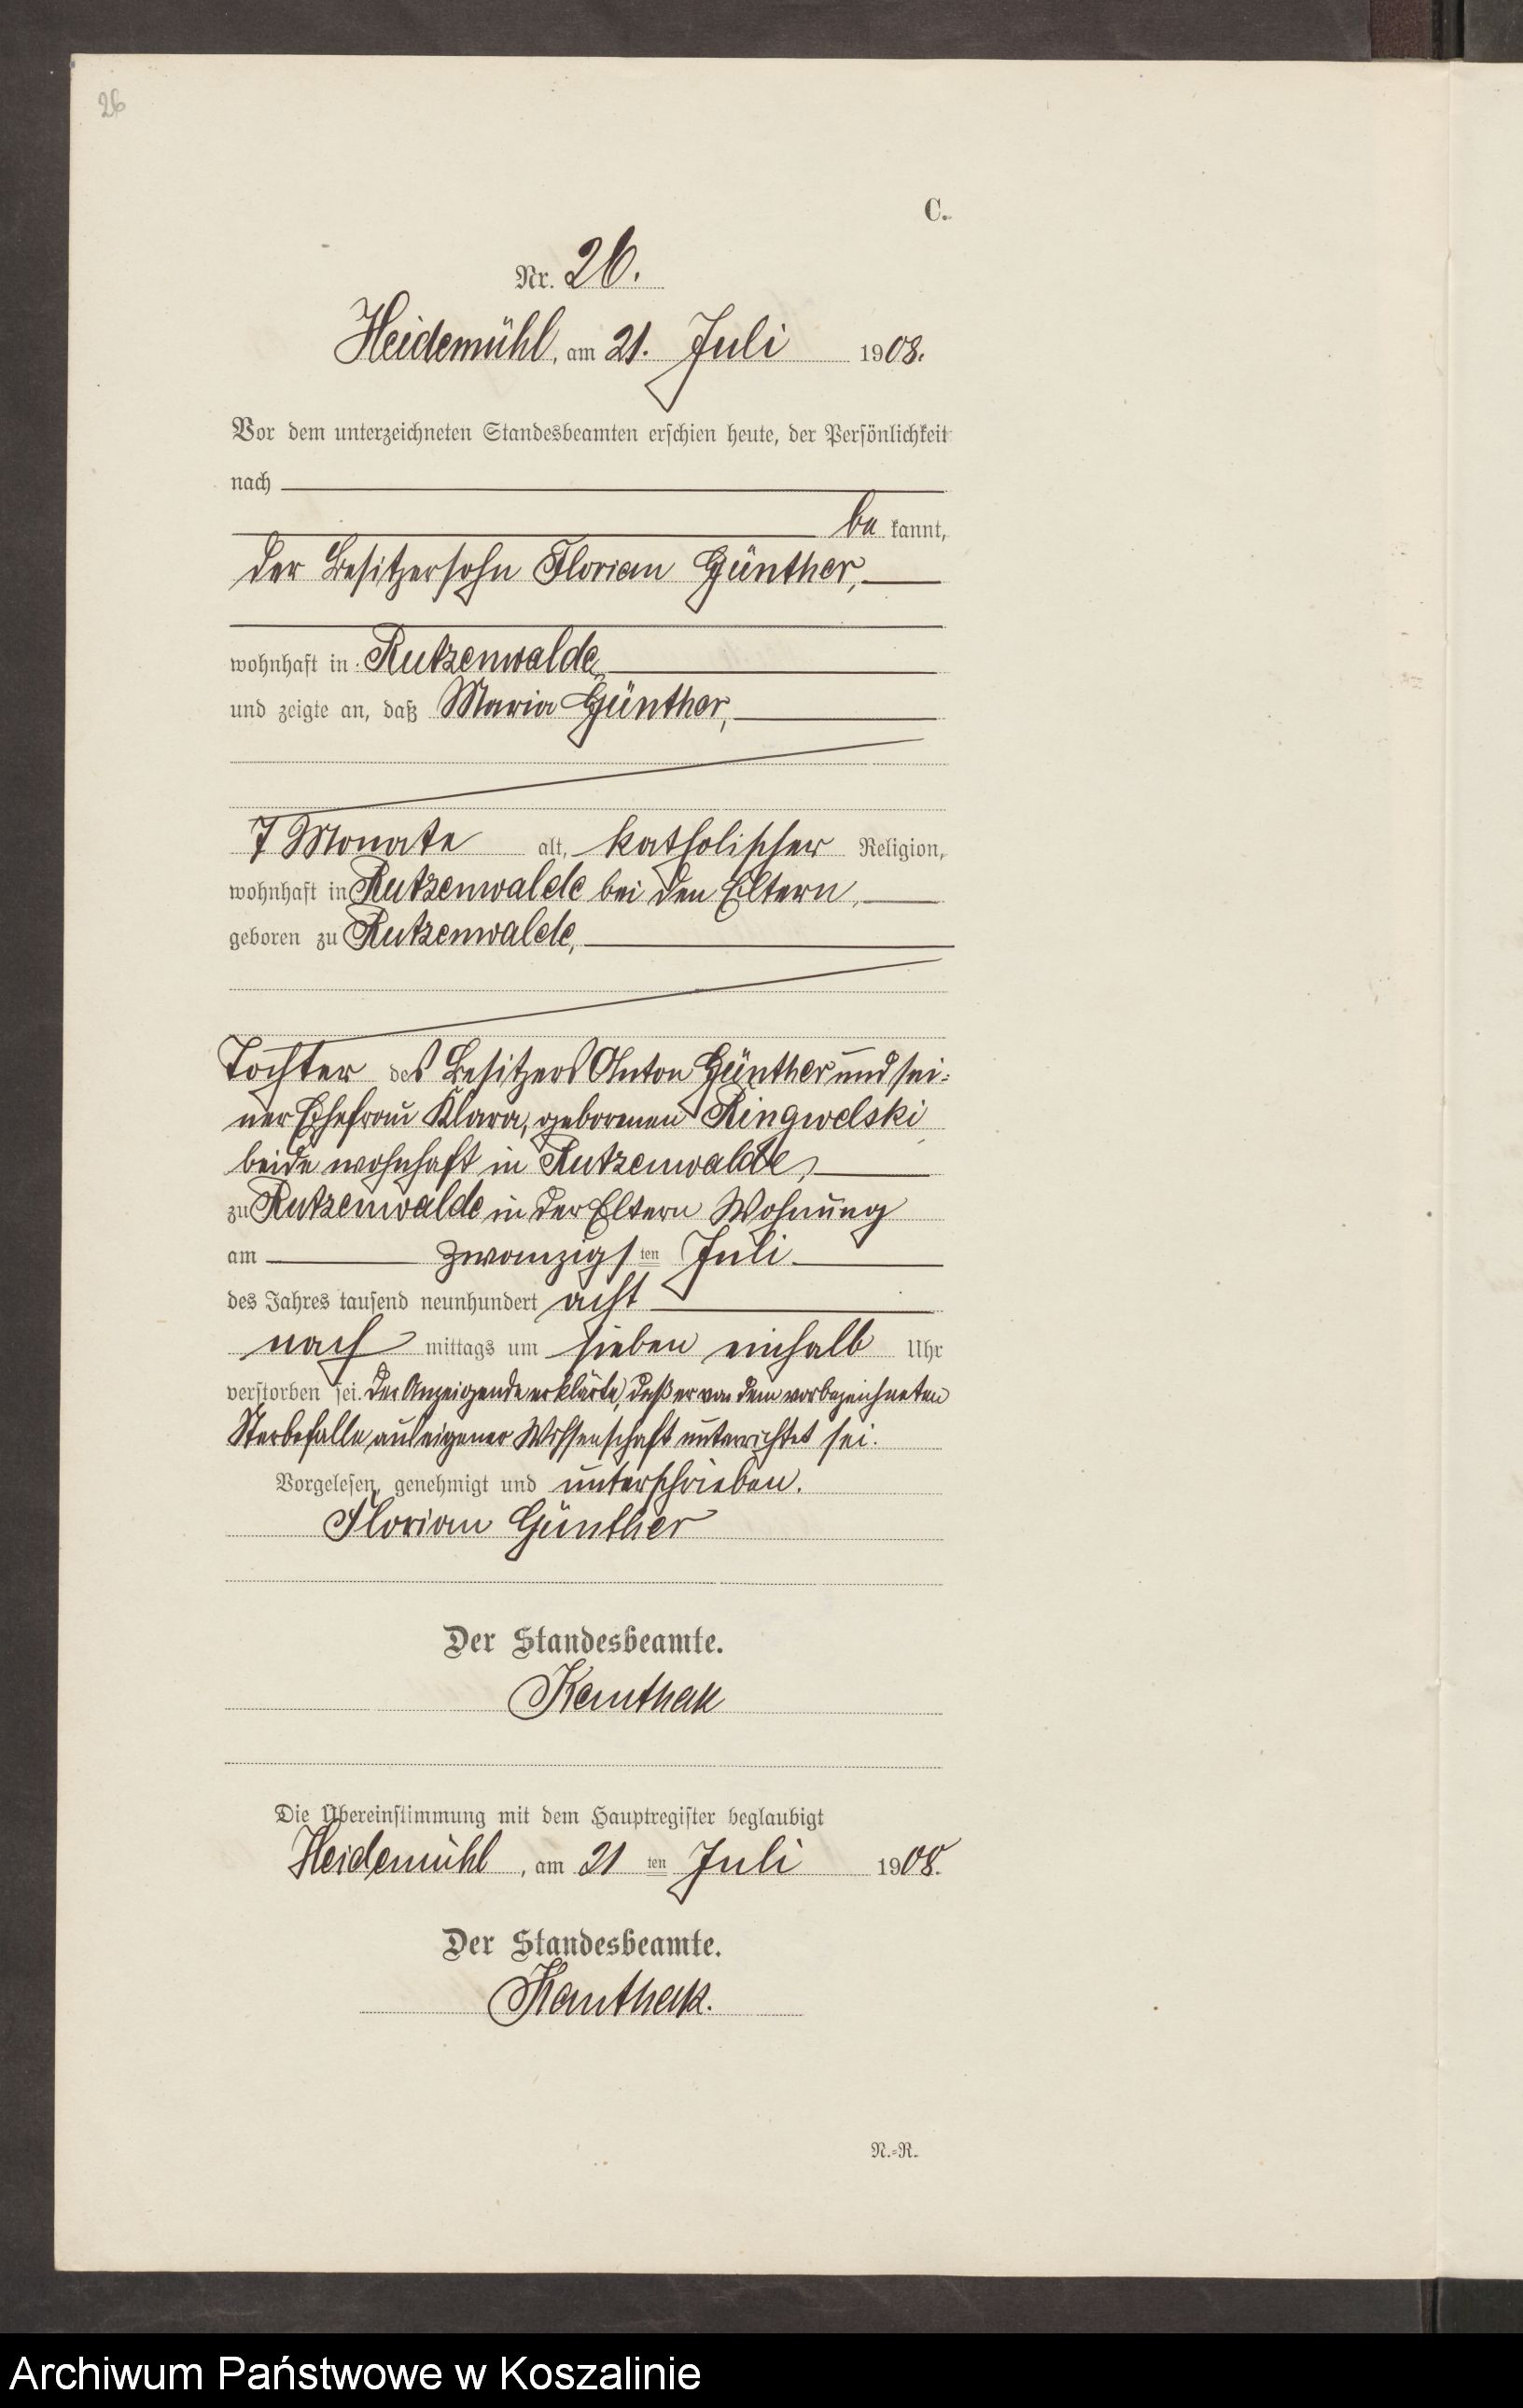 26
C.
Nr. 26.
Heidemühl, am 21. Juli 1908.
Vor dem unterzeichneten Standesbeamten erschien heute, der Persönlichkeit
nach
bekannt,
der Besitzersohn Florian Günther,
wohnhaft in Rutzenwalde,
und zeigte an, daß Maria Günther,
7 Monate alt, katholischer Religion,
wohnhaft in Rutzenwalde bei den Eltern,
geboren zu Rutzenwalde,
Tochter des Besitzers Anton Günther und sei-
ner Ehefrau Klara, geborenen Ringwelski
beide wohnhaft in Rutzenwalde,
zu Rutzenwalde in der Eltern Wohnung
am zwanzigsten Juli
des Jahres tausend neunhundert acht
nachmittags um sieben einhalb Uhr
verstorben sei. Der Anzeigende erklärte, daß er von dem vorbezeichneten
Sterbefalle aus eigener Wissenschaft unterrichtet sei.
Vorgelesen, genehmigt und unterschrieben.
Florian Günther
Der Standesbeamte.
Kauthak
Die Übereinstimmung mit dem Hauptregister beglaubigt
Heidemühl, am 21ten Juli 1908.
Der Standesbeamte.
Kauthak.
N.-R.
Archiwum Państwowe w Koszalinie